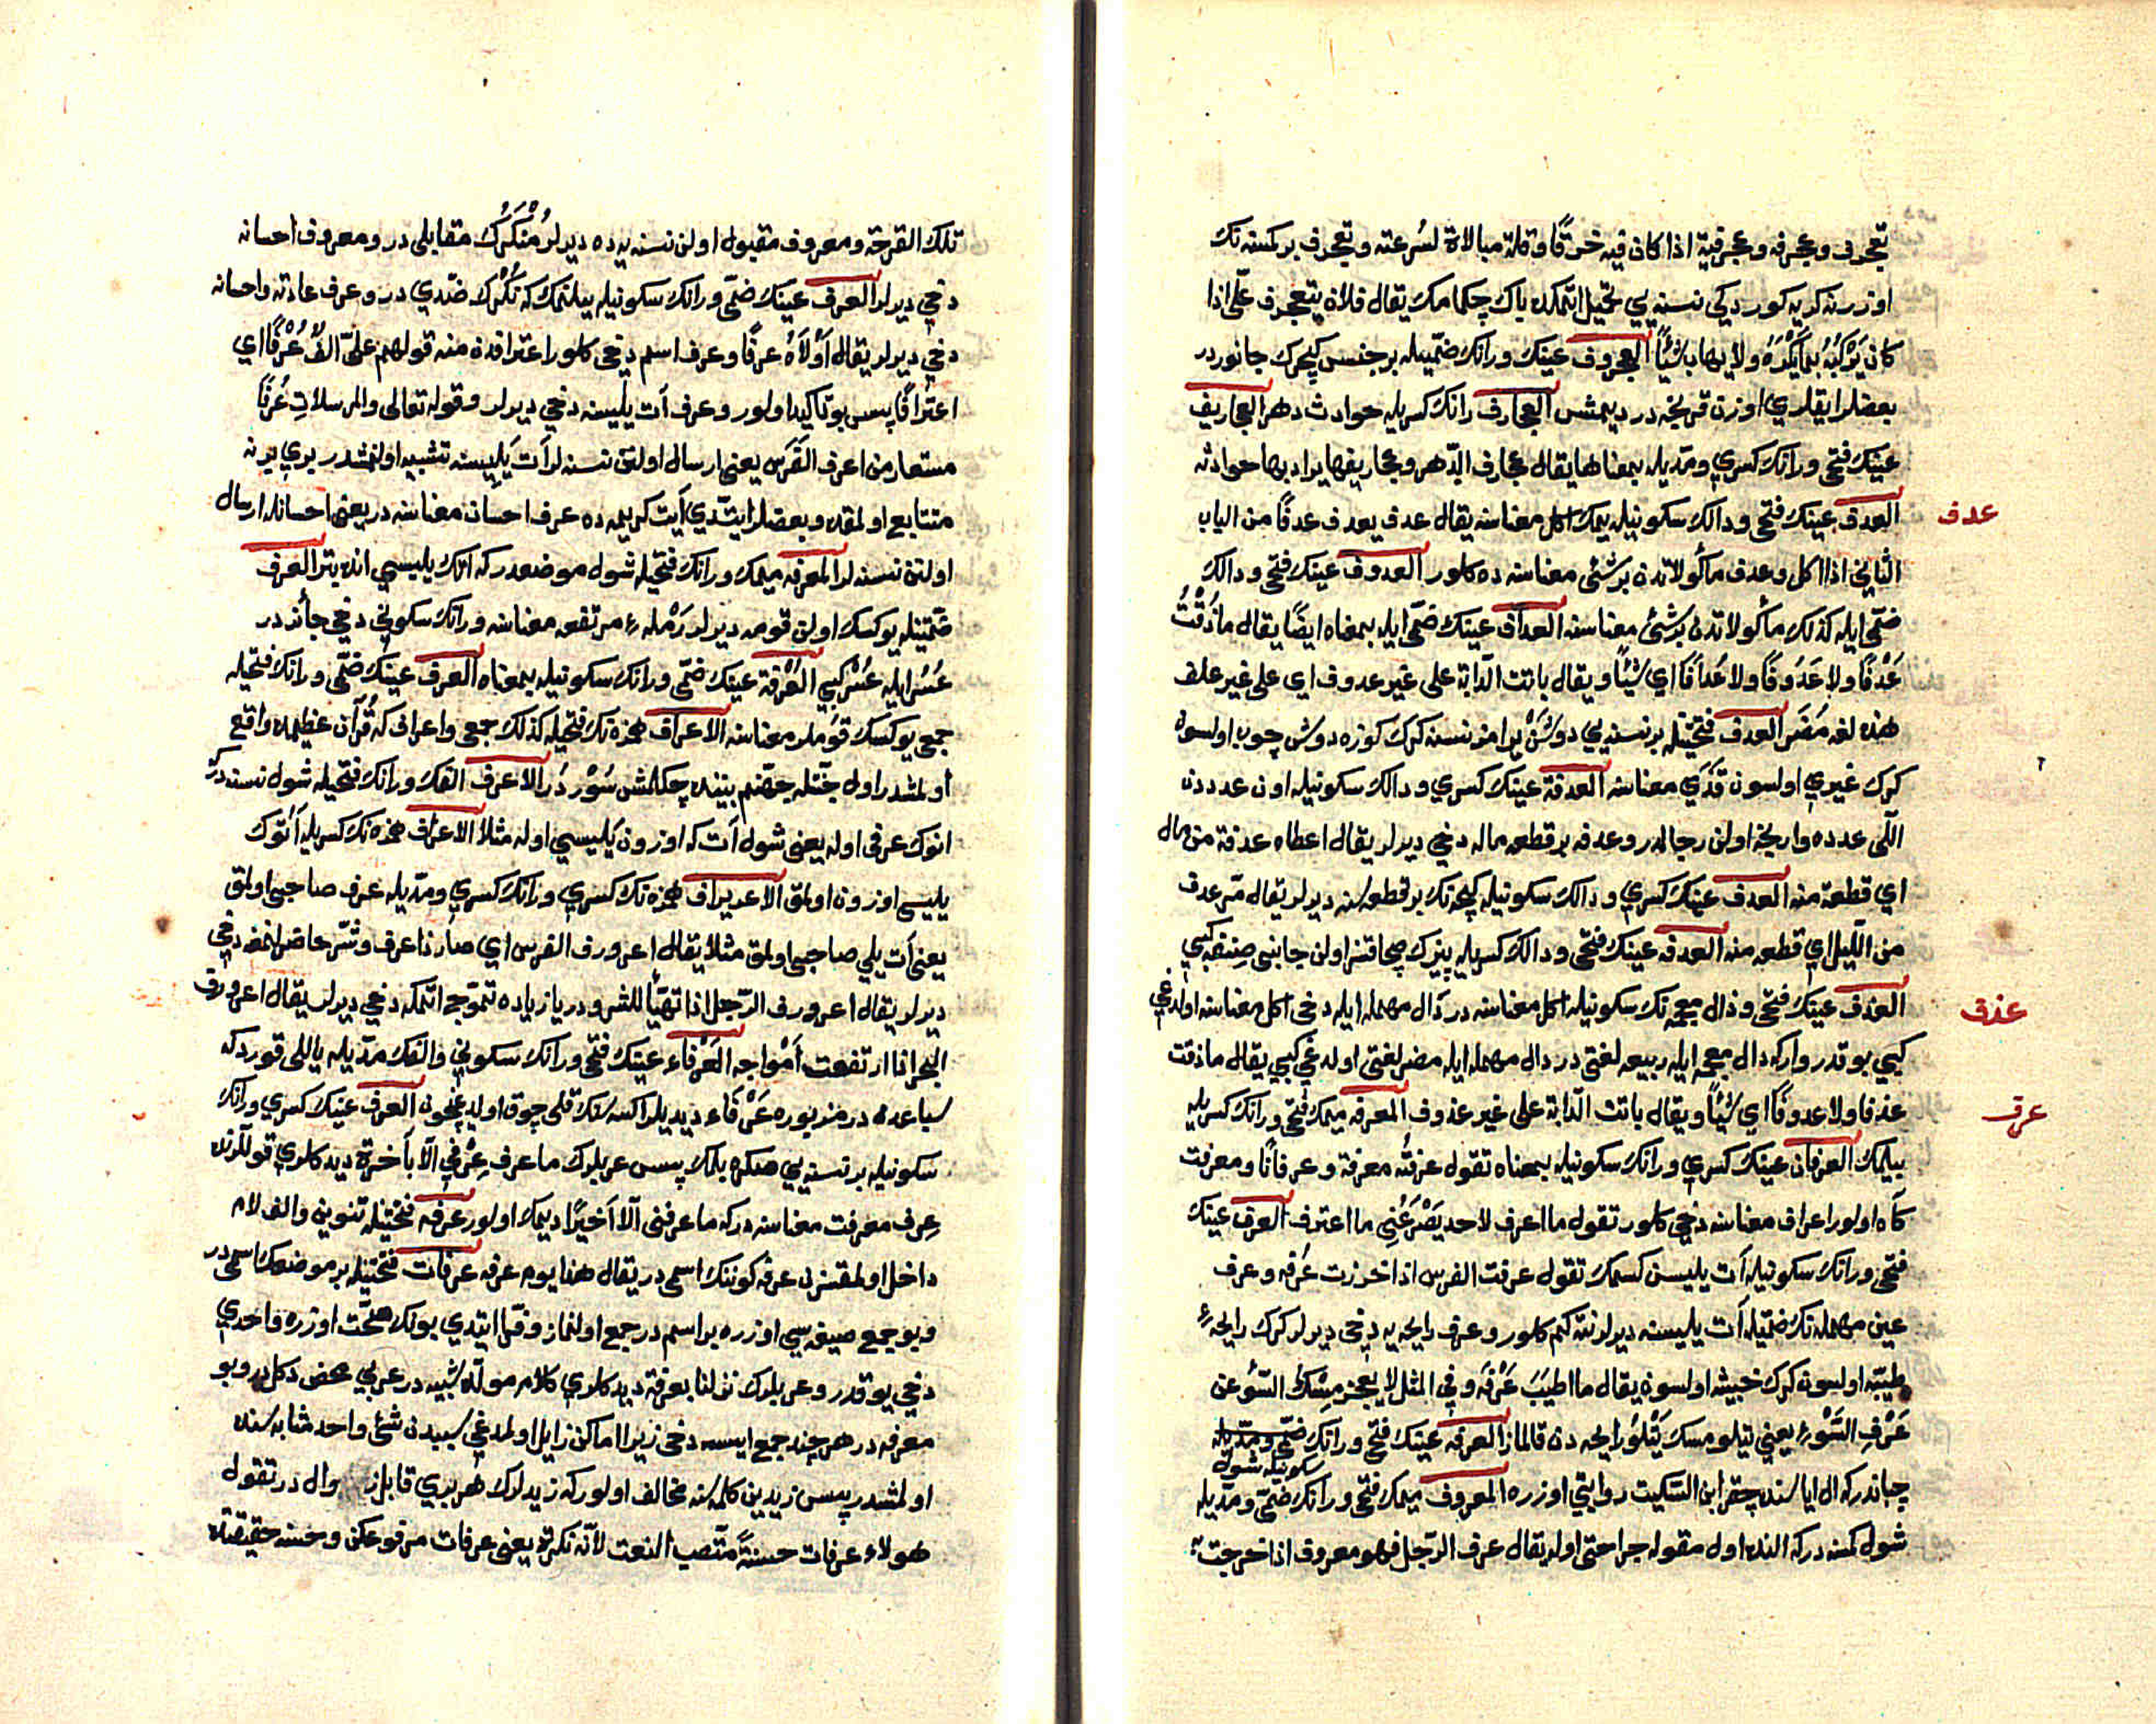 تعجرف وعجرفه وعجرفية اذا كان فيه خرقًا وقلة مبالاة لسرعته وتعجرف بر كمسنه نك
اوزرنه كريه كوردكى نسنه يي تحميل اتمكده باك چكمامك يقال فلان يتعجرف علىّ اذا
كان يَرْكَبُهُ بما يَكْرَهُ ولا يهاب شيئًا العجروف عينك ورانك ضمّيله بر جنس كيچرك جانوردر
بعضلر ايقلري اوزن قرنجه در ديمشس العجارف رانك كسريله حوادث دهر العجاريف
عينك فتحى ورانك كسري ومدّيله بمعناها يقال عجارف الدّهر وعجاريفها يراد بها حوادثه
عدف
العدف عينك فتحى ودالك سكونيله يمك اكل معناسنه يقال عدف يعدف عدفًا من الباب
الثاني اذا اكل وعدف مأكولاتدن بر شئى معناسنه ده كلور العدوف عينك فتحى ودالك
ضمّى ايله كذلك مأكولاتدن بر شئ معناسنه العداف عينك ضمّى ايله بمعناه ايضًا يقال ما ذُقْتُ
عَدْفًا ولا عَدُوفًا ولا عُدافًا اي شيئًا ويقال باتت الدّابة على غير عدوف اي على غير علف
هذه لغه مُضَر العدف فتحتيله بر نسنه يي دوشن بر امز نسنه كرك كوزه دوش چوب اولسون
كرك غيري اولسون قَذَي معناسنه العدفة عينك كسري ودالك سكونيله اون عددن
اللى عدده وارنجه اولن رجالدر وعدفه بر قطعه ماله دخي ديرلر يقال اعطاه عدفة من مال
اي قطعة منه العدف عينك كسري ودالك سكونيله كيجه نك بر قطعه سنه ديرلر يقال مرّ عدف
من اللّيل اي قطعه منه العدفه عينك فتحى ودالك كسريله
عذف
العذف عينك فتحى وذال معجمه نك سكونيله اكل معناسنه در دال مهمله ايله دخى اكل معناسنه اولدغي
كبي بو قدر وار كه ذال معجمه ايله ربيعه لغتى در دال مهمله ايله مضر لغتى اولدغي كبي يقال ما ذقت
عرف
عذفا ولا عذوفًا اي شيئًا ويقال باتت الدّابة على غير عذوف المعرفه ميمك فتحى ورانك كسريله
بيلمك العرفان عينك كسري ورانك سكونيله بمعناه تقول عرفتُه معرفة وعرفانًا ومعرفت
كاه اولور اعراف معناسنه دخي كلور تقول ما اعرف لاحد يَصْرَعُنِي ما اعترف العرف عينك
فتحى ورانك سكونيله آت يليسن كسمك تقول عرفت الفرس اذا جززت عُرفه وعرف
عين مهمله نك ضمّيله آت يليسنه ديرلر نته كم كلور وعرف رايحه يه دخى ديرلر كرك رايحهٔ
طيبّه اولسون كرك خبيثه اولسون يقال ما اطيبَ عَرْفَه وفي المثل لا يعجز مسك السّوء عن
عَرْفِ السّوء يعني
العرفه عينك فتحى ورانك سكونيله شول
چباندركه ال اياسنده چقر ابن السّكيت روايتي اوزره المعروف ميمك فتحى ورانك ضمّى ومدّيله
شول كمسنه دركه النده اول مقوله جراحتى اوله يقال عرف الرّجل فهو معروف اذا خرجت به
تلك القرحة ومعروف مقبول اولن نسنه يه ده ديرلر مُنْكَرُك مقابلى در ومعروف احسانه
دخي ديرلر العرف عينك ضمّى ورانك سكونيله بيلنمك كه نُكْرك ضدّي در وعرف عادته واحسانه
دخي ديرلر يقال أَوْلَاهُ عرفًا وعرف اسم دخى كلور اعترافدن منه قولهم علىّ الفٌ عُرْفًا اي
اعترافًا پس بو تأكيد اولور وعرف آت يليسنه دخي ديرلر وقوله تعالى والمرسلات عُرفًا
مستعار من اعرف الفَرَس يعني ارسال اولنن نسنه لر آت يليسنه تشبيه اولنمشدر بري برنه
متتابع اولمقده وبعضلر ايتدي آيت كريمه ده عرف احسان معناسنه در يعنى احسانله ارسال
اولنن نسنه لر المعرفه ميمك ورانك فتحيله شول موضعدركه آتك يليسي انده بتر العرف
ضمّتيله يوكسك اولن قومه ديرلر رَمْلهٔ مرتفعه معناسنه ورانك سكوني دخي جائزدر
عُسُر ايله عُسْر كبي العُرْفة عينك ضمّى ورانك سكونيله بمعناه العرف عينك ضمّى ورانك فتحيله
جمعى يوكسك قوملر معناسنه الاعراف همزه نك فتحيله كذلك جمعى واعراف كه قُرآن عظيمده واقع
اولمشدر اول جنّتله جهنّم بيننده چكلمش سُوْر دُر الاعرف الفك ورانك فتحيله شول نسنه در كه
انوك عرفى اوله يعنى شول آت كه اوزون يليسي اوله مثلًا الاعراف همزه نك كسريله آتوك
يليسي اوزون اولمق الاعريراف همزه نك كسري ورانك كسري ومدّيله عرف صاحبى اولمق
يعنى آت يلي صاحبى اولمق مثلًا يقال اعرورف الفرس اي صار ذا عرف وشرّه حاضر لنمغه دخي
ديرلر يقال اعرورف الرّجل اذا تهيّأ للشر ودريا زياده تموّج اتمكه دخي ديرلر يقال اعرورف
البحر اذا ارتفعت أمْواجه العَرْفاء عينك فتحى ورانك سكوني والفك مدّيله ياللى قورد كه
سباعدن در مزبوره عَرْفاء ديديلر اكسه سنك قلى چوق اولدغيچون العرف عينك كسري ورانك
سكونيله بر نسنه يي صكره بلمك پس عربلرك ما عرف عِرْفي الّا بأخرة ديدكلري قوللرنده
عِرف معرفت معناسنه دركه ما عرفنى الّا اخيرًا ديمك اولور عرفه فتحتيله تنوين والف لام
داخل اولمقسزن عرفه كوننك اسمى در يقال هذا يوم عرفه عرفات فتحتيله بر موضعك اسمى در
وبو جمع صيغه سي اوزره بر اسم در جمع اولنماز وفرّا ايتدي بونك صحّت اوزره واحدي
دخي يوقدر وعربلرك نزلنا بعرفة ديدكلري كلام مولّده شبيه در عربي محض دكلدر وبو
معرفه در هر چند جمع ايسه دخى زيرا اماكن زايل اولمدغي سببدن شئ واحد مثابه سنده
اولمشدر پس زيدين كلمه سنه مخالف اولور كه زيدلرك هر بري قابل زوال در تقول
هولاء عرفات حسنةً منتصب النعت لانّه نكرة يعنى عرفات مرفوعكن وحسنه حقيقتده